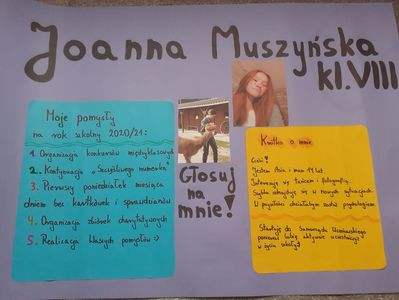 Joanna Muszyńska
kl.VIII
Moje pomysły
na rok szkolny 2020/21:
1. Organizacja konkursów międzyklasowych
2. Kontynuacja „Szczęśliwego numerka"
3. Pierwszy poniedziałek miesiąca
dniem bez kartkówek i sprawdzianów
4. Organizacja zbiórek charytatywnych
5. Realizacja Waszych pomysłów :)
Głosuj
na
mnie!
Krótko o mnie
Cześć!
Jestem Asia i mam 14 lat.
Interesuję się tańcem i fotografią.
Szybko odnajduję się w nowych sytuacjach.
W przyszłości chciałabym zostać psychologiem.
Startuję do Samorządu Uczniowskiego
ponieważ lubię aktywnie uczestniczyć
w życiu szkoły!